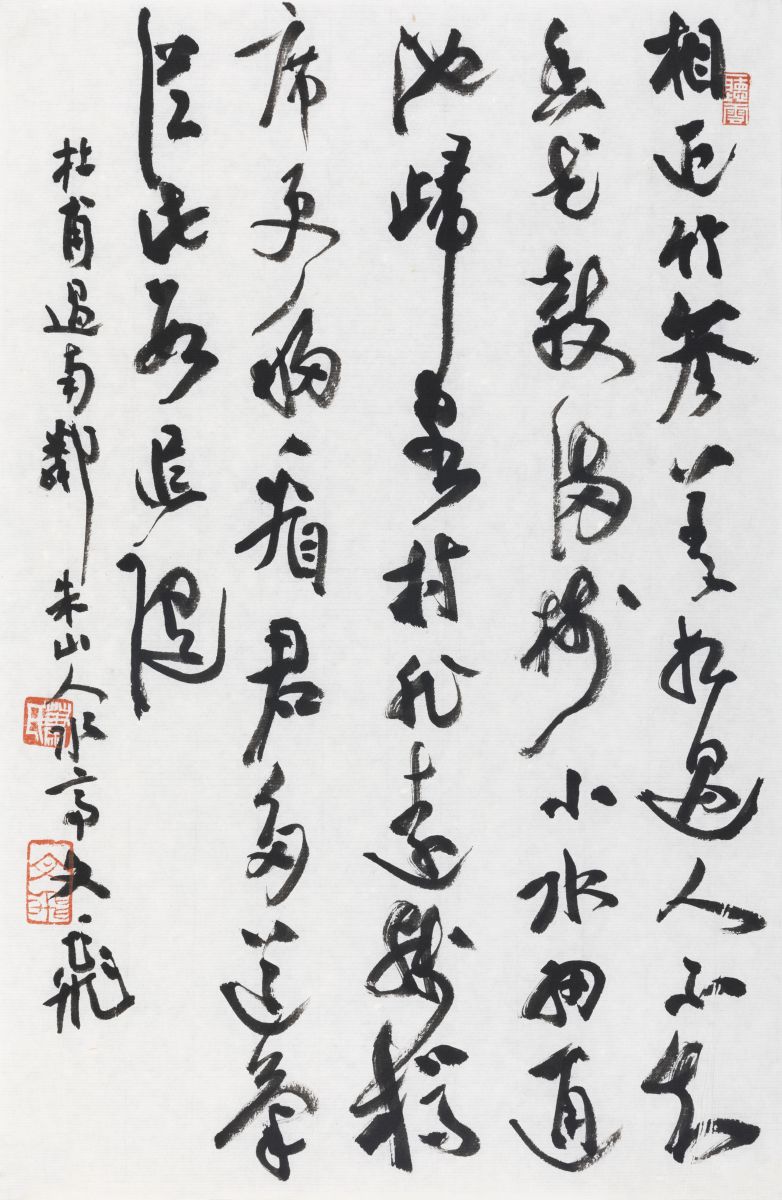 相近竹參差相過人不知
幽花欹滿樹小水細通
池歸客村非遠殘樽
席更移看君多道氣
從此數追隨
杜甫過南鄰朱山人水亭文飛
聽雲
文飛